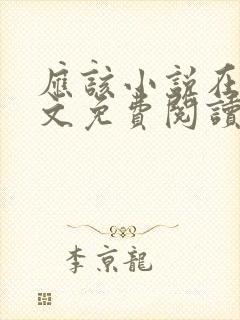 應該小說在
文免費閱讀
李京龍